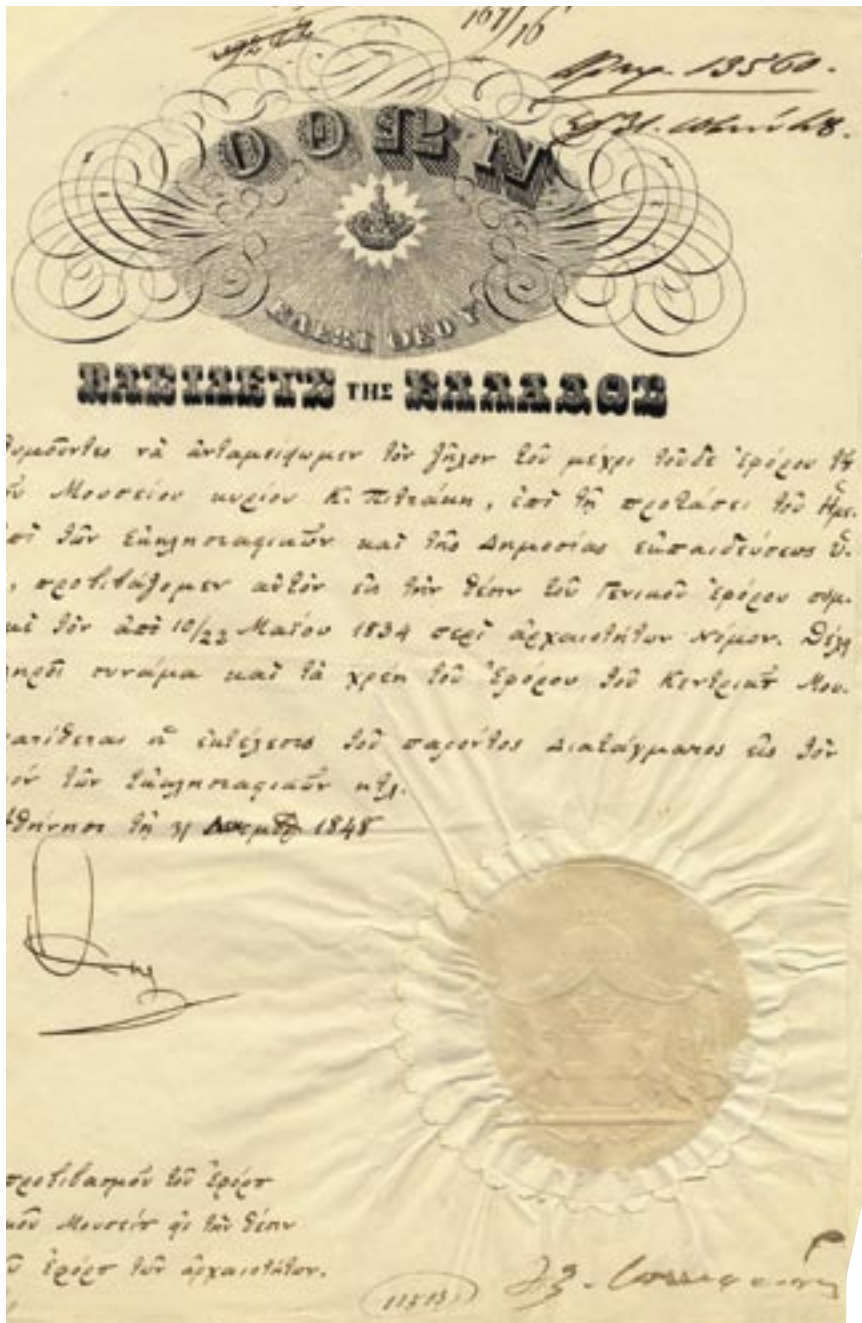 167/16
13560.
ΟΘΩΝ
ΕΛΕΩΙ ΘΕΟΥ
ΒΑΣΙΛΕΥΣ ΤΗΣ ΕΛΛΑΔΟΣ
θυμοῦντες νὰ ἀνταμείψωμεν τὸν ζῆλον τοῦ μέχρι τοῦδε Ἐφόρου τȣ
Μουσείου κυρίου Κ. Πιττάκη, ἐπὶ τῇ προτάσει τοῦ Ἡμε-
ἐπὶ τῶν Ἐκκλησιαστικῶν καὶ τῆς Δημοσίας ἐκπαιδεύσεως Ὑ-
, προβιβάζομεν αὐτὸν εἰς τὴν θέσιν τοῦ Γενικοῦ Ἐφόρου συμ-
τὸν ἀπὸ 10/22 Μαΐου 1834 περὶ ἀρχαιοτήτων Νόμον. Θέλει
συνάμα καὶ τὰ χρέη τοῦ Ἐφόρου τοῦ Κεντρικȣ͂ Μου-
ατίθεται ἡ ἐκτέλεσις τοῦ παρόντος Διατάγματος εἰς τὸν
τῶν Ἐκκλησιαστικῶν κτλ.
θήνησι τῇ 31 1848
προβιβασμὸν τοῦ Ἐφόρȣ
κοῦ Μουσείȣ εἰς τὴν θέσιν
ἐφόρȣ τῶν ἀρχαιοτήτων.